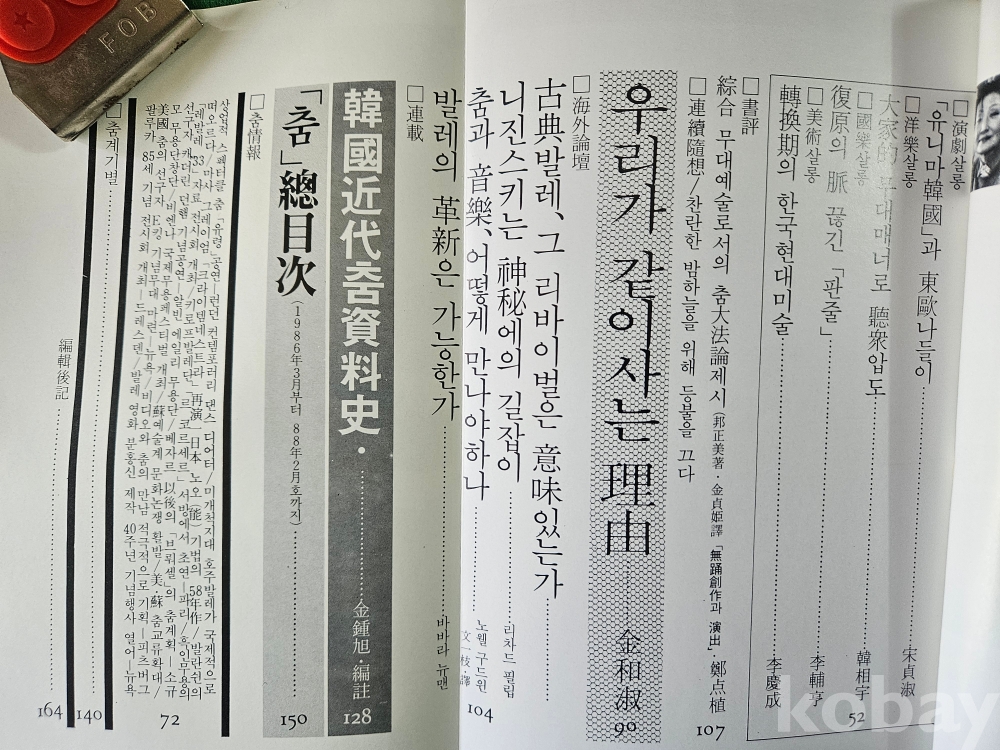 □演劇살롱
「유니마韓國」과 東歐나들이……宋貞淑
□洋樂살롱
大家的 무대매너로 聽衆압도……韓相宇
□國樂살롱
復原의 脈 끊긴「판줄」……李輔亨
□美術살롱
轉換期의 한국현대미술……李慶成
52
□書評
綜合 무대예술로서의 춤大法論제시 (邦正美著・金貞姬譯「無踊創作과 演出」・鄭点植
107
□連續隨想/찬란한 밤하늘을 위해 등불을 끄다
우리가 같이사는 理由……金和淑
90
□海外論壇
古典발레、그 리바이벌은 意味있는가……
니진스키는 神秘에의 길잡이……리차드 필립
춤과 音樂、어떻게 만나야하나……노웰 구드윈
文一枝・譯
104
발레의 革新은 가능한가……바바라 뉴맨
□連載
韓國近代춤資料史・……金鍾旭・編註
128
「춤」總目次 (1986年3月부터 88年2月호까지)……
150
□춤情報
상업적 스펙터클 춤「유령」공연―런던 컨템포러리 댄스 디어터/미개척지대 호주발레가 국제적으로
떠오르다/마사 그레이엄「크라이템네스트라」再演/日本 노오(能)기법의 58年作/발란신의
「레발레 33」자료 전시회 개최/키로프발레단「르 코르세르」서방에서 초연―파리/
선구자 캐더린 던햄 기념공연―알빈 에일리 무용단/베자르 以後의「브뤼셀」의 춤계획―소규
모 무용단창단/비엔나 국제무용페스티벌 개최/蘇예술계 문화논쟁 활발/美・蘇 춤교류확대/
美國 춤의 선구자 E킹 기념무대 마련―뉴욕/비디오와 춤의 만남 적극적으로 기획―피츠버그
팔루카 85세 기념 전시회 개최―드레스덴/발레 영화 분홍신 제작 40주년 기념행사 열어―뉴욕
72
□춤계기별……
140
編輯後記……
164
FOB
kobay